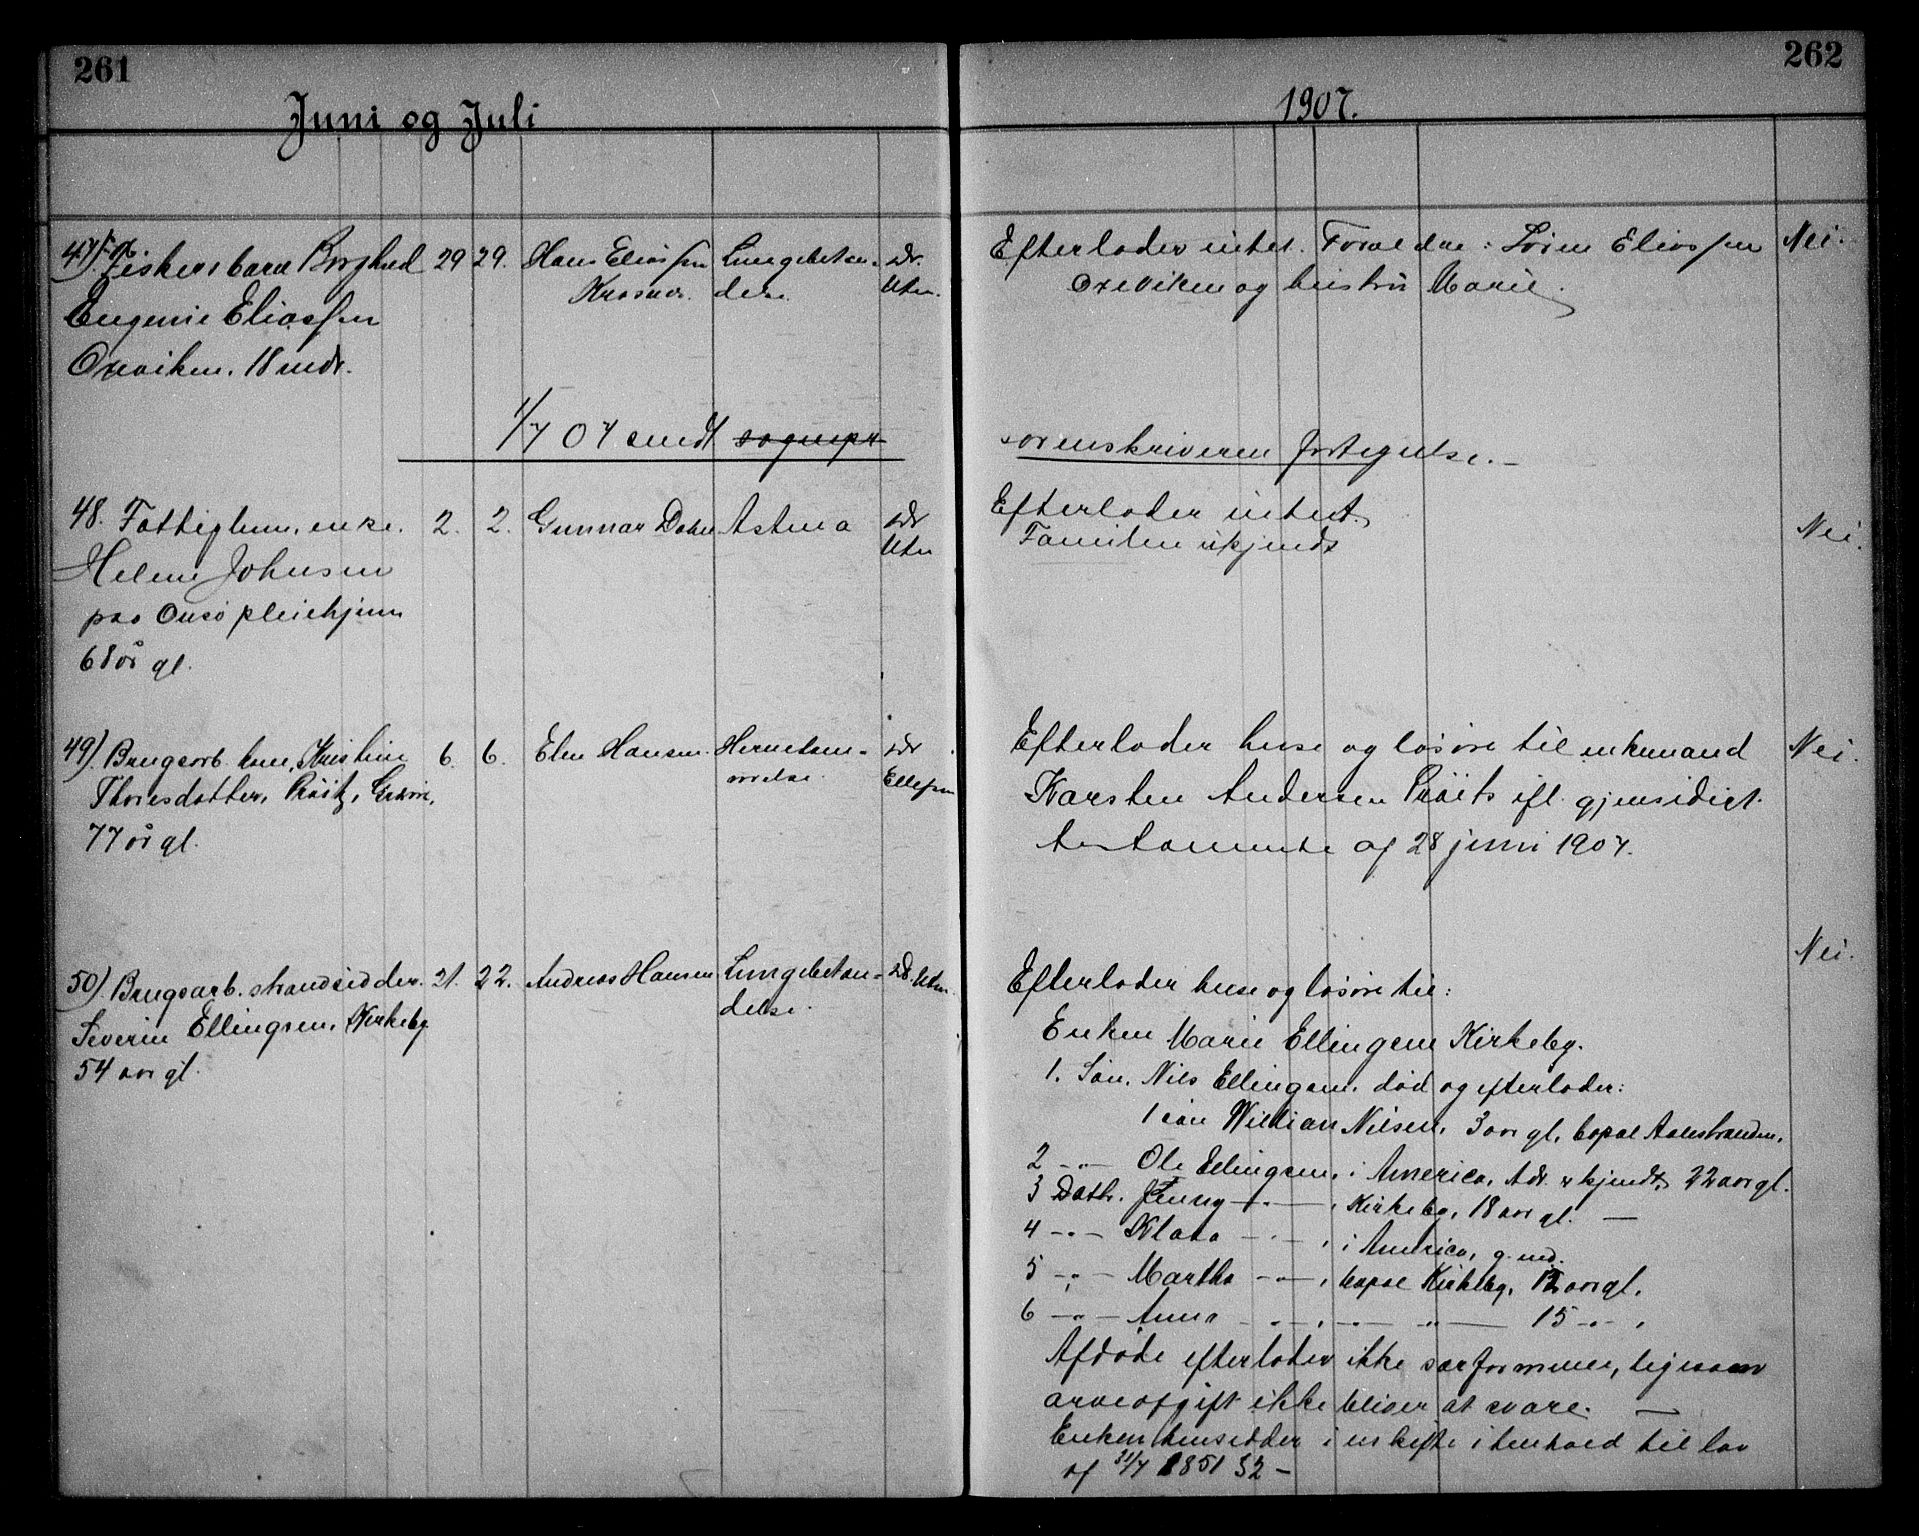 261
Juni og Juli
47) Fiskersbarn Borghild 29 29. Hans Eliassen Lungebetæn- dr.
Krosnes. delse. Utne.
Eugenie Eliassen
Oxeviken. 18 mdr.
1/7 07 sendt sognepr
48. Fattiglem, enke. 2. 2. Gunnar Dahl Astma dr
Utne
Helene Johnsen
paa Onsø pleiehjem
68 år gl.
49). Brugsarb. kone, Kristine 6. 6. Elen Hansen. Hjernebetæn- dr
delse. Ellefsen
Thoresdatter, Pröitz,
77 år gl.
50). Brugsarb. strandsidder. 21. 22. Andreas Hansen Lungebetæn- dr. Utne.
delse.
Severin Ellingsen, Kirkeby
54 aar gl.
262
1907.
Efterlader intet. Forældre: Sören Eliassen Nei.
Oxeviken og hustru Marie.
sorenskriveren fortegnelse. -
Efterlader intet.
Familien ukjendt Nei.
Efterlader huse og løsøre til enkemand Nei.
Karsten Andersen Pröits ifl. gjensidigt
testamente af 28 juni 1907.
Nei.
Efterlader huse og løsøre til:
Enken Marie Ellingsen Kirkeby.
1. Søn, Nils Ellingsen, død og efterlader:
1 søn William Nilsen, 3 aar gl, bopæl Aalestranden,
2 -"- Ole Ellingsen, i America, Adr. ukjendt, 22 aar gl.
3 Datr. Jenny -"-, Kirkeby, 18 aar gl. -
4 -"- Klara -"-, i America, g. med.
5 -"- Martha -"-, bopæl Kirkeby, 12 aar gl.
6 -"- Anna -"-, -"- 15 -"-,
Afdøde efterlader ikke særformue, ligesom
arveafgift ikke bliver at svare. -
Enken hensidder i uskifte i henhold til lov
af 31/7 1851 § 2 -